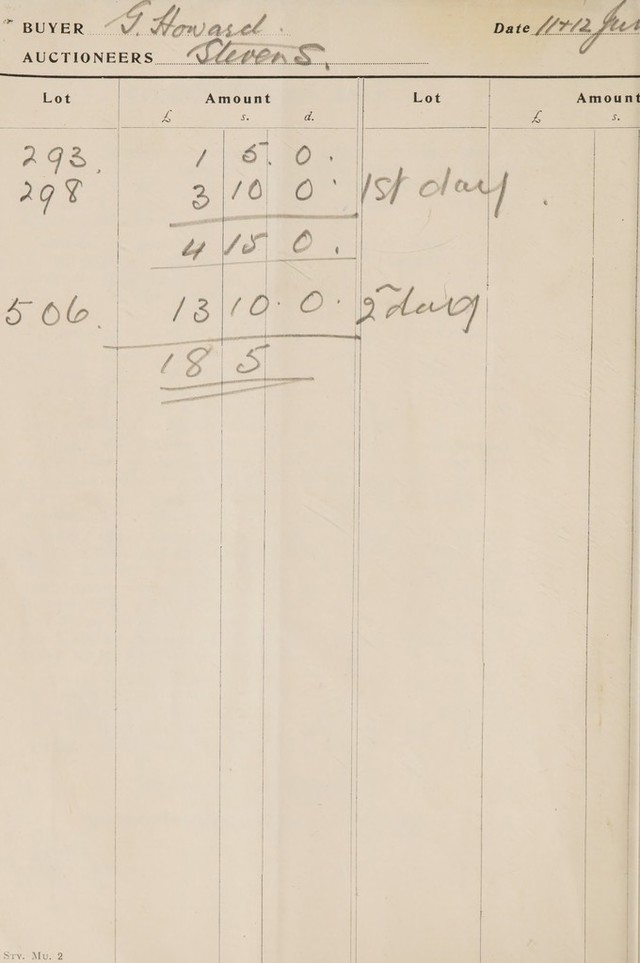 BUYER G. Howard. Date 11+12
AUCTIONEERS Stevens.
Lot Amount Lot Amount
£ s. d. £ s.
293. 1 5. 0.
298 3 10 0 1st day.
4 15 0.
506. 13 10. 0. 2 day
18 5
Stv. Mu. 2